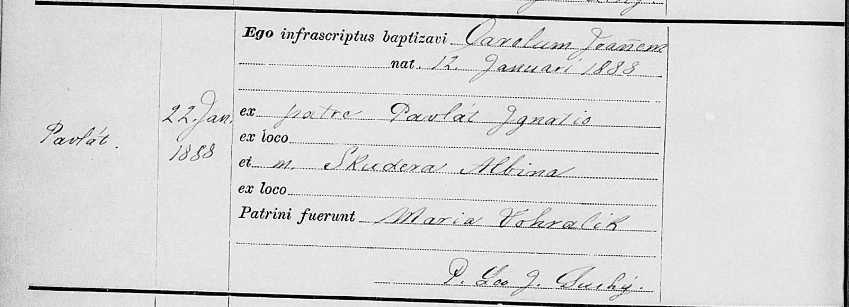 Pavlát.
22. Jan.
1888
Ego infrascriptus baptizavi Carolum Joañem
nat. 12. Januari 1888
ex patre Pavlát Ignatio
ex loco
et m. Skudera Albina
ex loco
Patrini fuerunt Maria Vohralik
P. Leo J. Suchý.